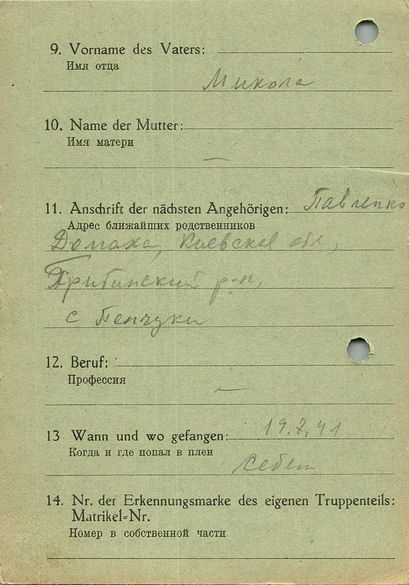 9. Vorname des Vaters:
Имя отца
Микола
10. Name der Mutter:
Имя матери
—
11. Anschrift der nächsten Angehörigen: Павленко
Адрес ближайших родственников
Домаха, Киевская обл,
р-н,
с Пенчуки
12. Beruf:
Профессия
—
13 Wann und wo gefangen:
Когда и где попал в плен
14. Nr. der Erkennungsmarke des eigenen Truppenteils:
Matrikel=Nr.
Номер в собственной части